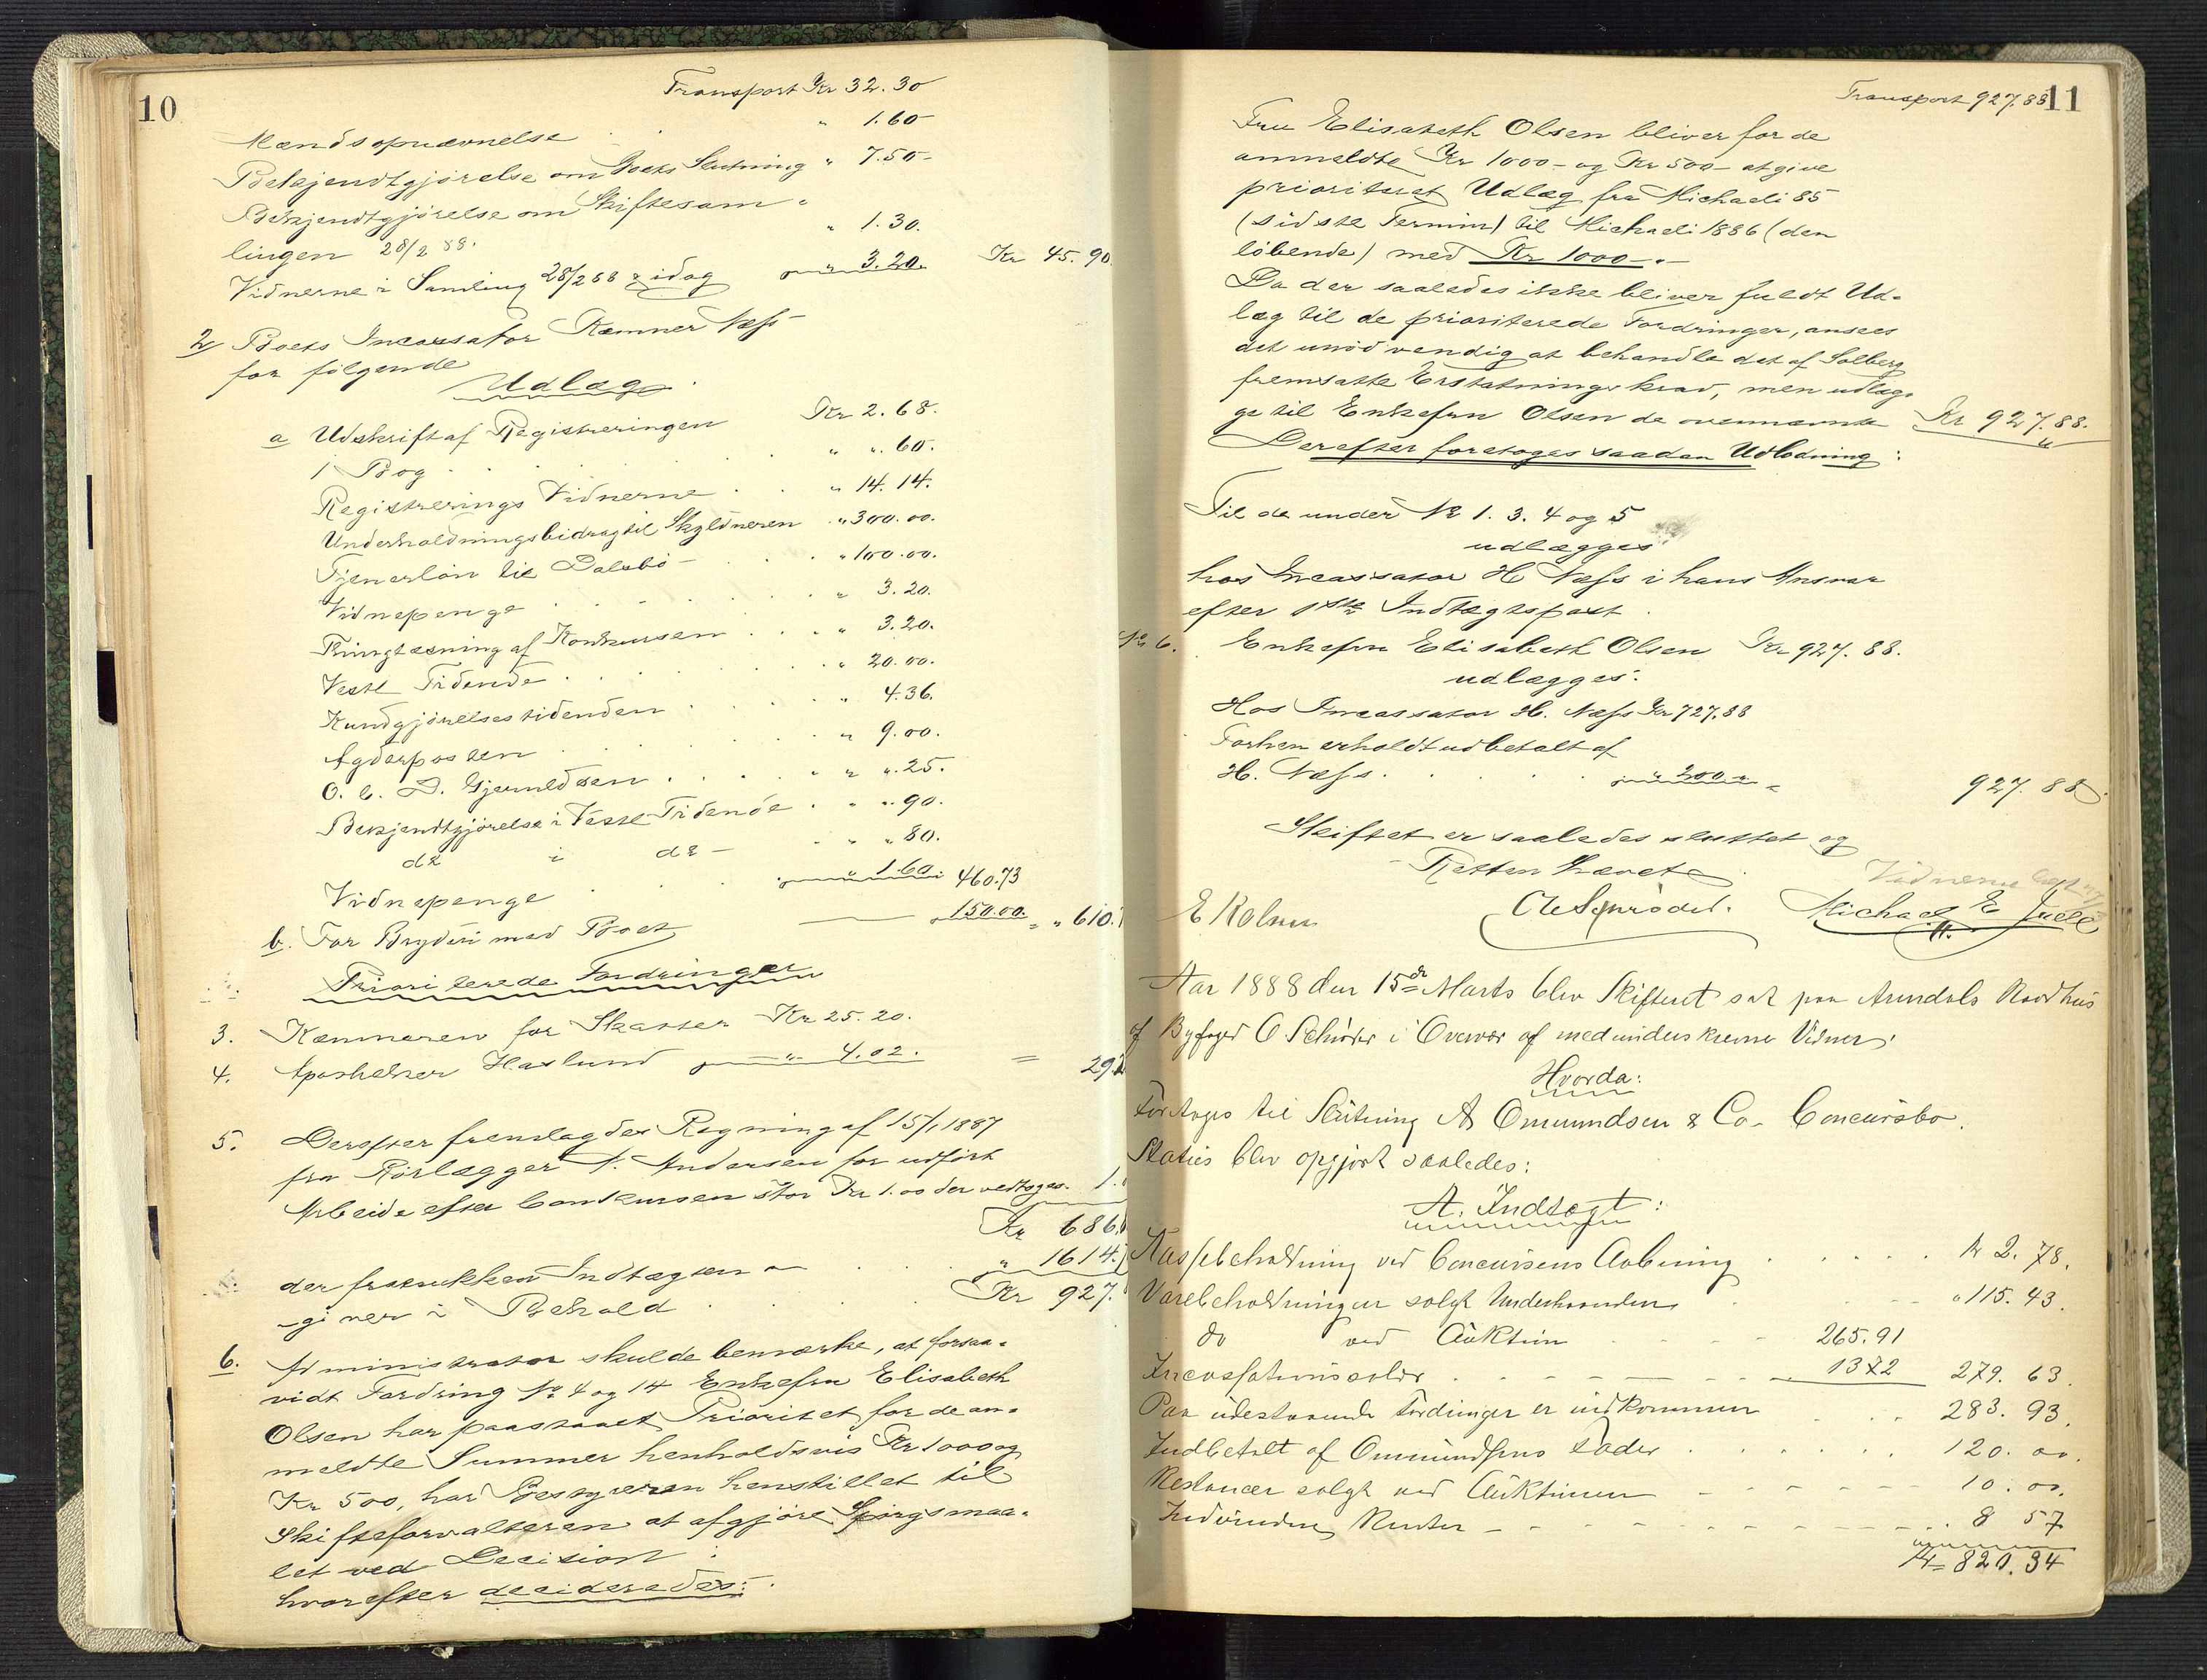 10
Transport Kr 32.30
Mændsopnævnelse " 1.60
Bekjendtgjørelse om Boets Slutning " 7.50
Bekjendtgjørelse om Skiftesam-
lingen 28/2 88. " 1.30.
Vidnerne i Samling 28/2 88 & idag " 3.20. Kr 45.90
2 Boets Incassator Kæmner Næss
for følgende
Udlæg
a Udskrift af Registreringen Kr 2.68.
1 Bog " ". 60.
Registrerings Vidnerne " 14.14.
Underholdningsbidrag til Skyldneren " 300.00.
Tjenerløn til Dalebø " 100.00.
Vidnepenge " 3.20.
Thinglæsning af Konkursen " 3.20.
Vestl. Tidende " 20.00.
Kundgjørelsestidenden " 4.36.
Agderposten " 9.00.
O. C. D. Gjeruldsen " ". 25.
Bekjendtgjørelse i Vestl Tidende " ". 90.
do i do " " 80.
Vidnepenge " 1.60. 460.73
b. For Bryderi med Boet 150.00. = " 610.
Prioriterede Fordringer
3. Kæmneren for Skatter Kr 25.20.
4. Apotheker Haslund " 4.02. = 29.
5. Derefter fremlagdes Regning af 15/1 1887
fra Rørlægger A. Andersen for udført
Arbeide efter Conkursen stor Kr 1.00 der vedtoges. 1.
Kr 686.
der fratrukken Indtægten " 1614.
giver i Behold Kr 927.
6. Administrator skulde bemærke, at forsaa-
vidt Fordring No 4 og 14 Enkefru Elisabeth
Olsen har paastaaet Prioritet for de an-
meldte Summer henholdsvis Kr 1000 og
Kr 500, har Bestyreren henstillet til
Skifteforvalteren at afgjøre Spørgsmaa-
let ved Decision:
hvorefter decideredes:
Transport 927.88 11
Fru Elisabeth Olsen bliver for de
anmeldte Kr 1000 - og Kr 500 - at give
prioriteret Udlæg fra Michaeli 85
(sidste Termin) til Michaeli 1886 (den
løbende) med Kr 1000 -.-
Da der saaledes ikke bliver fuldt Ud-
læg til de prioriterede Fordringer, ansees
det unødvendig at behandle det af Solberg
fremsatte Erstatningskrav, men udlæg-
ges til Enkefru Olsen de ovennævnte Kr 927.88.
Derefter foretoges saadan Udlodning:
Til de under No 1. 3. 4 og 5
udlægges
hos Incassator H. Næss i hans Ansvar
efter 1ste Indtægtspost.
No 6. Enkefru Elisabeth Olsen Kr 927.88.
udlægges:
Hos Incassator H. Næss Kr 727.88
Forhen erholdt udbetalt af
H. Næss. " 200 " 927.88
Skiftet er saaledes sluttet og
Retten hævet
Vidnerne bet
E Kolnes C Schrøder. Michael E Juell
Aar 1888 den 15de Marts blev Skifteret sat paa Arendals Raadhus
af Byfoged C Schrøder i Overvær af medunderskrevne Vidner,
Hvorda:
Foretoges til Slutning A Omundsen & Co. Concursbo.
Status blev opgjort saaledes:
A. Indtægt:
Kassebeholdning ved Concursens Aabning Kr 2. 78.
Varebeholdningen solgt Underhaanden " 115. 43.
do ved Auktion 265.91
Incassations 1372 279. 63.
Paa udestaaende Fordringer er indkommen 283. 93.
Indbetalt af Omundsens Fader 120. 00.
Restancer solgt ved Auktionen 10. 00.
Indvundne Renter 8 57
Kr 820.34